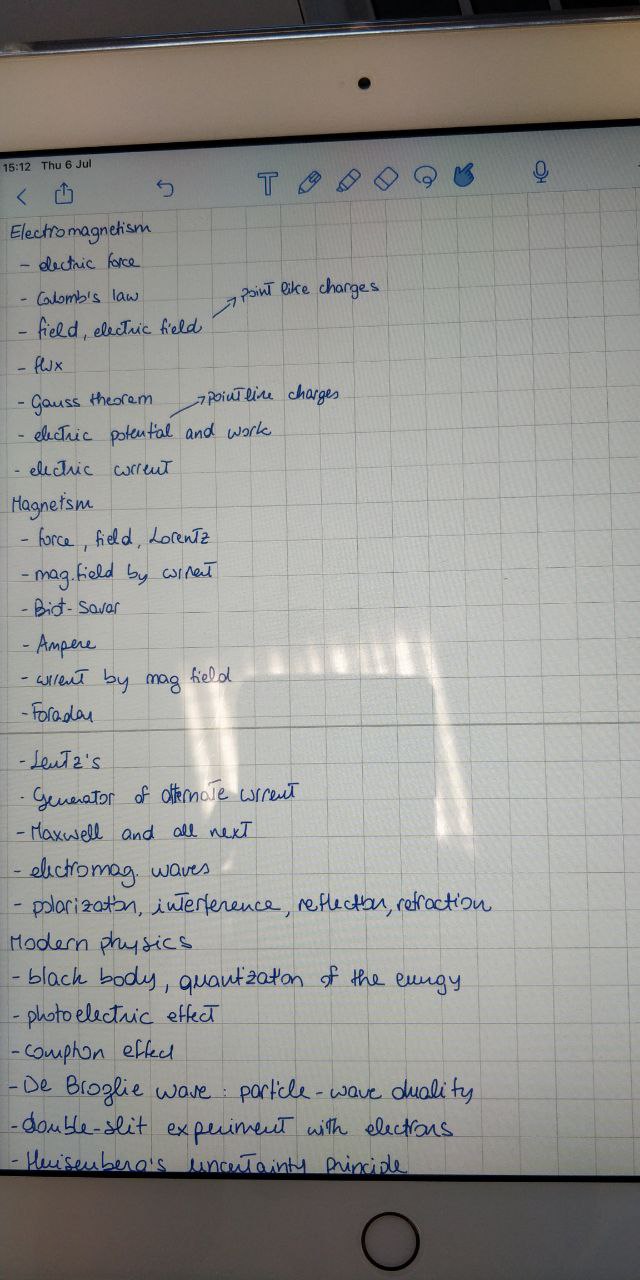 15:12 Thu 6 Jul
T
Electromagnetism
- electric force
- Colomb's law
→ point like charges
- field, electric field
- flux
- Gauss theorem
→ point like charges
- electric potential and work
- electric current
Magnetism
- force, field, Lorentz
- mag. field by current
- Biot-Savar
- Ampere
- current by mag field
- Faraday
- Lentz's
- Generator of alternate current
- Maxwell and all next
- electromag. waves
- polarization, interference, reflection, refraction
Modern physics
- black body, quantization of the energy
- photoelectric effect
- compton effect
- De Broglie wave: particle-wave duality
- double-slit experiment with electrons
- Heisenberg's uncertainty principle